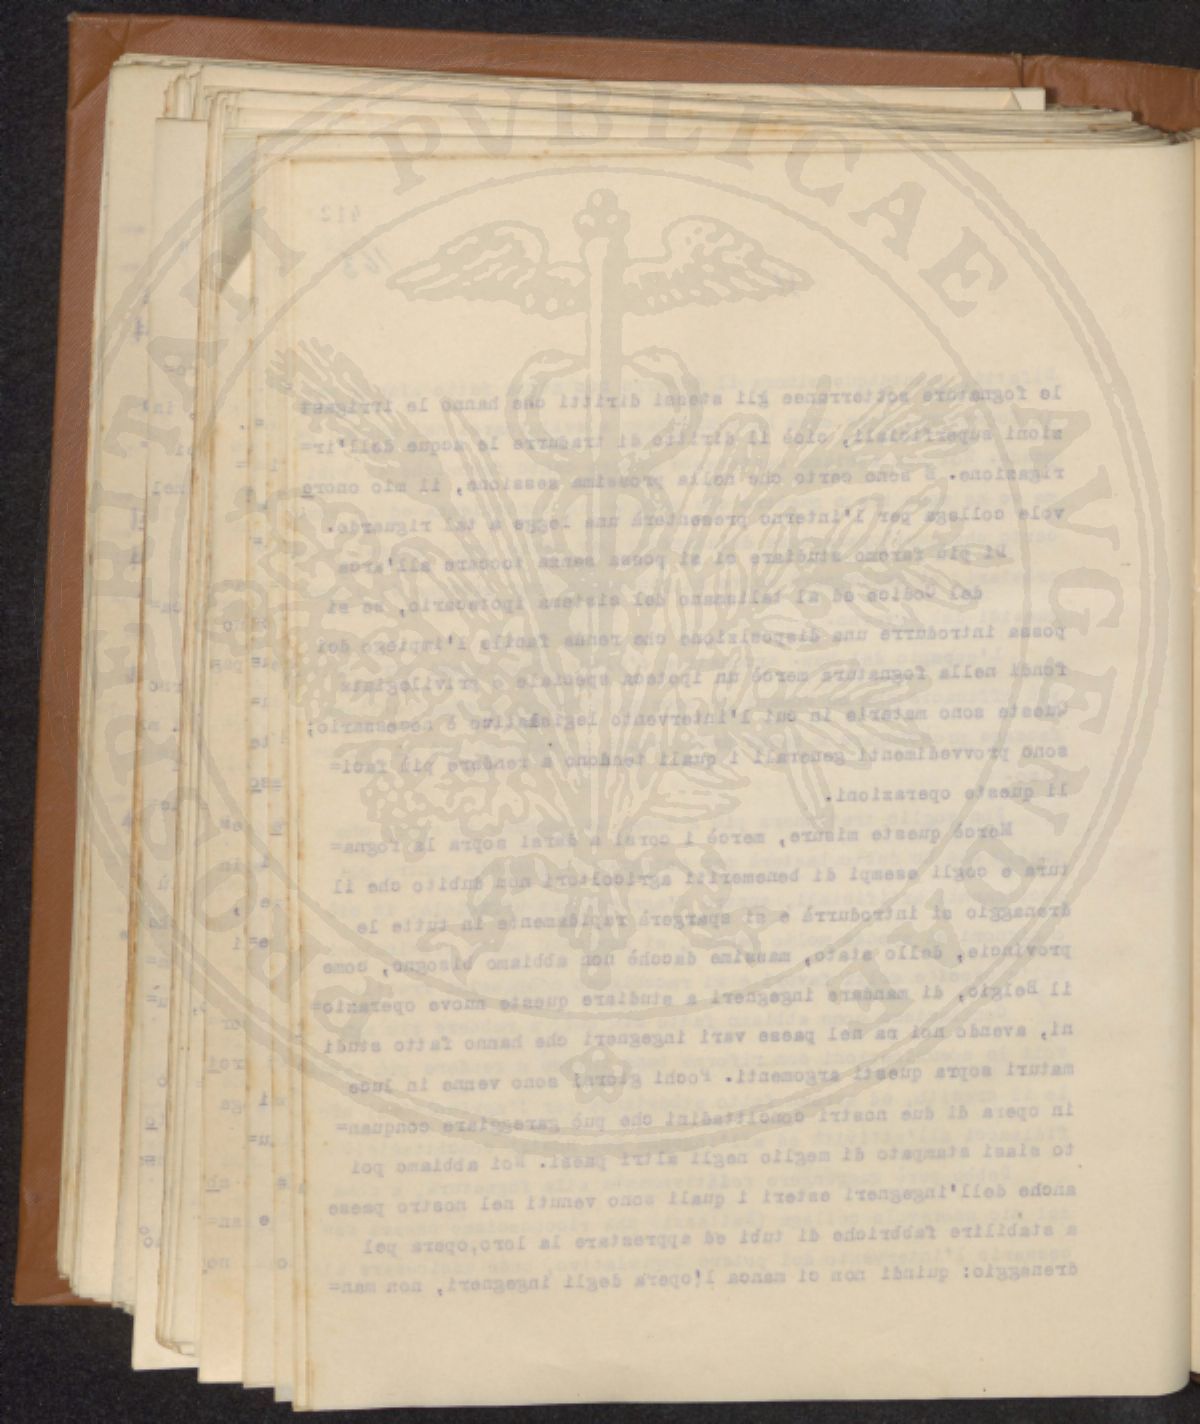 412
le fognature sotterranee gli stessi diritti che hanno le irrigasi
zioni superficiali, cioè il diritto di tradurre le acque dell'ir=
rigazione. E sono certo che nella prossima sessione, il mio onore
vole collega per l'interno presenterà una legge a tal riguardo.
Di più faremo studiare ci si possa senza toccare all'arca
del Codice ed al talismano del sistera ipotecario, se si
possa introdurre una disposizione che renda facile l'impiego dei
fondi nella fognatura mercè un ipoteca speciale e privilegiata
Queste sono materie in cui l'intervento legislativo è necessario;
sono provvedimenti generali i quali tendono a rendere più faci=
li queste operazioni.
Mercè queste misure, mercè i corsi a darsi sopra la fogna=
tura e cogli esempi di benemeriti agricoltori non dubito che il
drenaggio si introdurrà e si spargerà rapidamente in tutte le
provincie, dello stato, massime dacchè non abbiamo bisogno, come
il Belgio, di mandare ingegneri a studiare queste nuove operazio=
ni, avendo noi na nel paese vari ingegneri che hanno fatto studi
maturi sopra questi argomenti. Pochi giorni sono venne in luce
in opera di due nostri concittadini che può gareggiare conquan=
to siasi stampato di meglio negli altri paesi. Noi abbiamo poi
anche dell'ingegneri esteri i quali sono venuti nel nostro paese
a stabilire fabbriche di tubi ed apprestare la loro,opera pel
drenaggio: quindi non ci manca l'opera degli ingegneri, non man=
PROSPERITATI PVBLICAE AVGENDAE